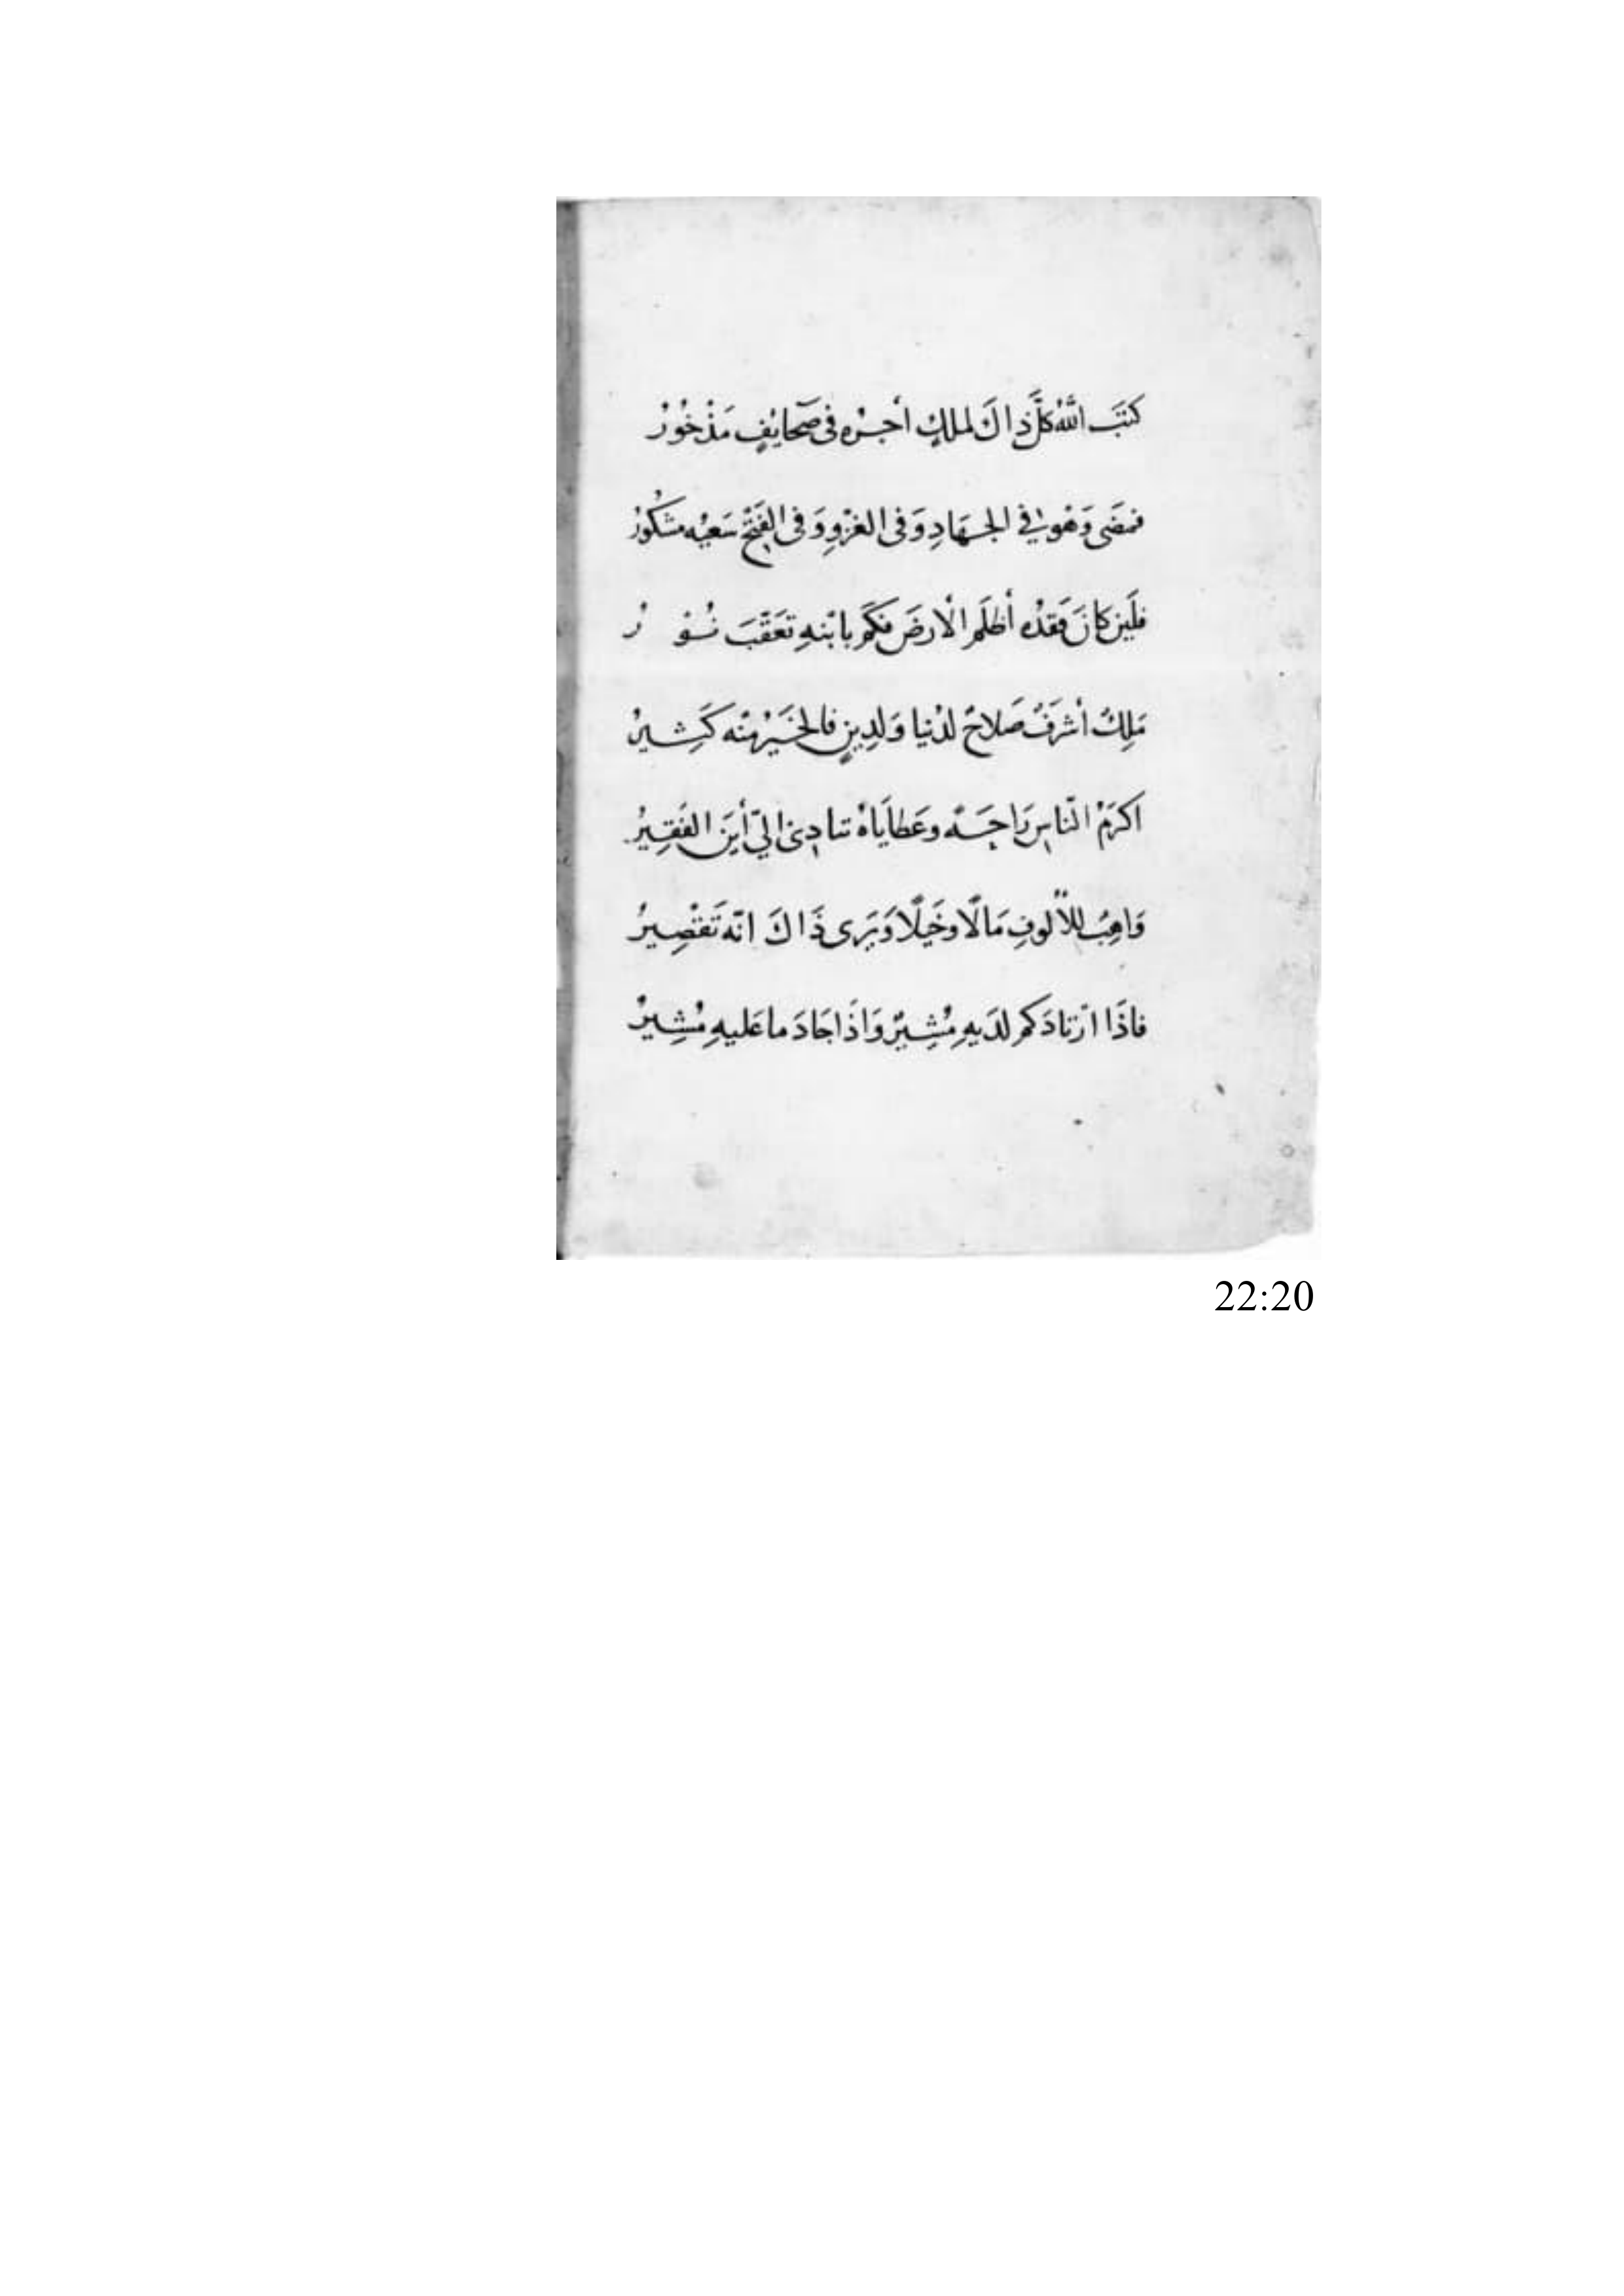 كَتَبَ اللّٰهُ كلَّ ذاكَ لملكٍ أجرُه فى صَحايفٍ مَذْخُورُ
فمضَى وَهْو في الجهَادِ وَفى الغزْوِ وَفى الفَتْحِ سَعيُه مشكورُ
فلَين كانَ فَقدُه أظلَم الارضَ فكَم بابْنهِ تَعَقّبَ نُوْرُ
مَلِكٌ أشرَفٌ صَلاحٌ لدُنيا وَلدِينٍ فالخَيرُ منْه كَثِيرُ
اكرَمُ النّاسِ رَاحَةً وعَطايَاهُ تنادِى الىّ أيَن الفَقِيرُ
وَاهِبُ للألوفِ مَالًا وخَيلًا وَيَرى ذَاكَ انّه تَقْصِيرُ
فاذَا ارْتادَ كم لدَيهِ مُشِيرٌ وَاذَا جَادَ ما عَليهِ مُشِيرُ
22:20